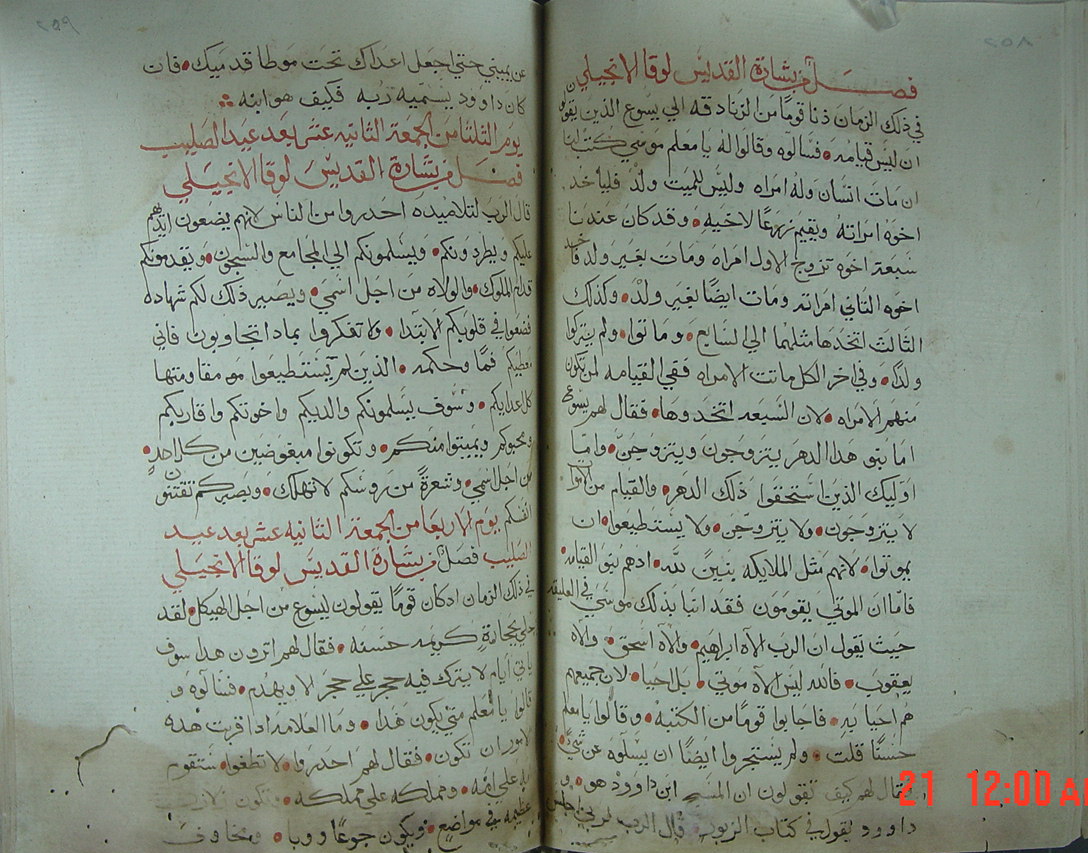 ٢٥٨
فصل من بشارة القديس لوقا الانجيلي
في ذلك الزمان دنا قومًا من الزنادقه الي يسوع الذين يقولو
ان ليس قيامه • فسالوه وقالوا له يا معلم موسي كتب لنا
ان مات انسان وله امراه وليس للميت ولد فلياخد
اخوه امراته ويقيم زرعًا لاخيه • وقد كان عندنا
سبعة اخوه تزوج الاول امراه ومات بغير ولد فاخد
اخوه التاني امراته ومات ايضًا بغير ولد • وكذلك
التالت اتخدها متلهما الي السابع • وماتوا • ولم يتركوا
ولدًا • وفي اخر الكل ماتت الامراه ففي القيامه لمن تكون
منهم الامراه • لان السبعه اتخدوها • فقال لهم يسوع
اما بنو هدا الدهر يتزوجون ويتزوجن • واما
اوليك الذين استحقوا ذلك الدهر • والقيام من الاموا
لا يتزوجون • ولا يتزوجن • ولا يستطيعوا • ان
يموتوا • لانهم متل الملايكه بنين لله • ادهم بنو القيامه •
فاما ان الموتي يقومون فقد انبا بذلك موسي في العليقه
حيت يقول ان الرب الاه ابراهيم • والاه اسحق • والاه
يعقوب • فالله ليس الاه موتي • بل احيا • لان جميعهم
هم احيا به • فاجابوا قومًا من الكتبه • وقالوا يا معلم
حسنًا قلت • ولم يستجروا ايضًا ان يسلوه عن شي •
فقال لهم كيف تقولون ان المسيح ابن داوود هو • و
داوود يقول في كتاب الزبور • قال الرب لربي اجلس
٢٥٩
عن يميني حتي اجعل اعداك تحت موطا قدميك • فان
كان داوود يسميه ربه فكيف هو ابنه
يوم التلتا من الجمعة التانيه عشر بعد عيد الصليب
فصل من بشارة القديس لوقا الانجيلي
قال الرب لتلاميده احدروا من الناس لانهم يضعون ايديهم
عليكم ويطردونكم • ويسلمونكم الي المجامع والسجون • ويقدمونكم
قدام الملوك • والولاه من اجل اسمي • ويصير ذلك لكم شهاده
فضعوا في قلوبكم الا تبتدا • ولا تفكروا بمادا تجاوبون فاني
اعطيكم فمًا وحكمه • الذين لم يستطيعوا مقاومتها
كل اعدايكم • وسوف يسلمونكم والديكم واخوتكم واقاربكم
ومحبوكم ويميتوا منكم • وتكونوا مبغوضين من كل احدٍ •
من اجل اسمي • وشعرةً من روسكم لا تهلك • وبصبركم تقتنو
انفسكم يوم الاربعا من الجمعة التانيه عشر بعد عيد
الصليب فصل من بشارة القديس لوقا الانجيلي
في ذلك الزمان ادكان قومًا يقولون ليسوع من اجل الهيكل • لقد
بحجارةٍ كريمه حسنه • فقال لهم اترون هدا سوف
ياتي ايام لا يترك فيه حجر علي حجر الا ويهدم • فسالوه و
قالوا يا معلم متي يكون هدا • وما العلامه ادا قربت هده
الامور ان تكون • فقال لهم احدروا • لا تطغوا • ستقوم
امه علي امه • ومملكه علي مملكه • وتكون
عظيمه في مواضع • ويكون جوعًا ووبا • ومخاوف
21 12:00 AM